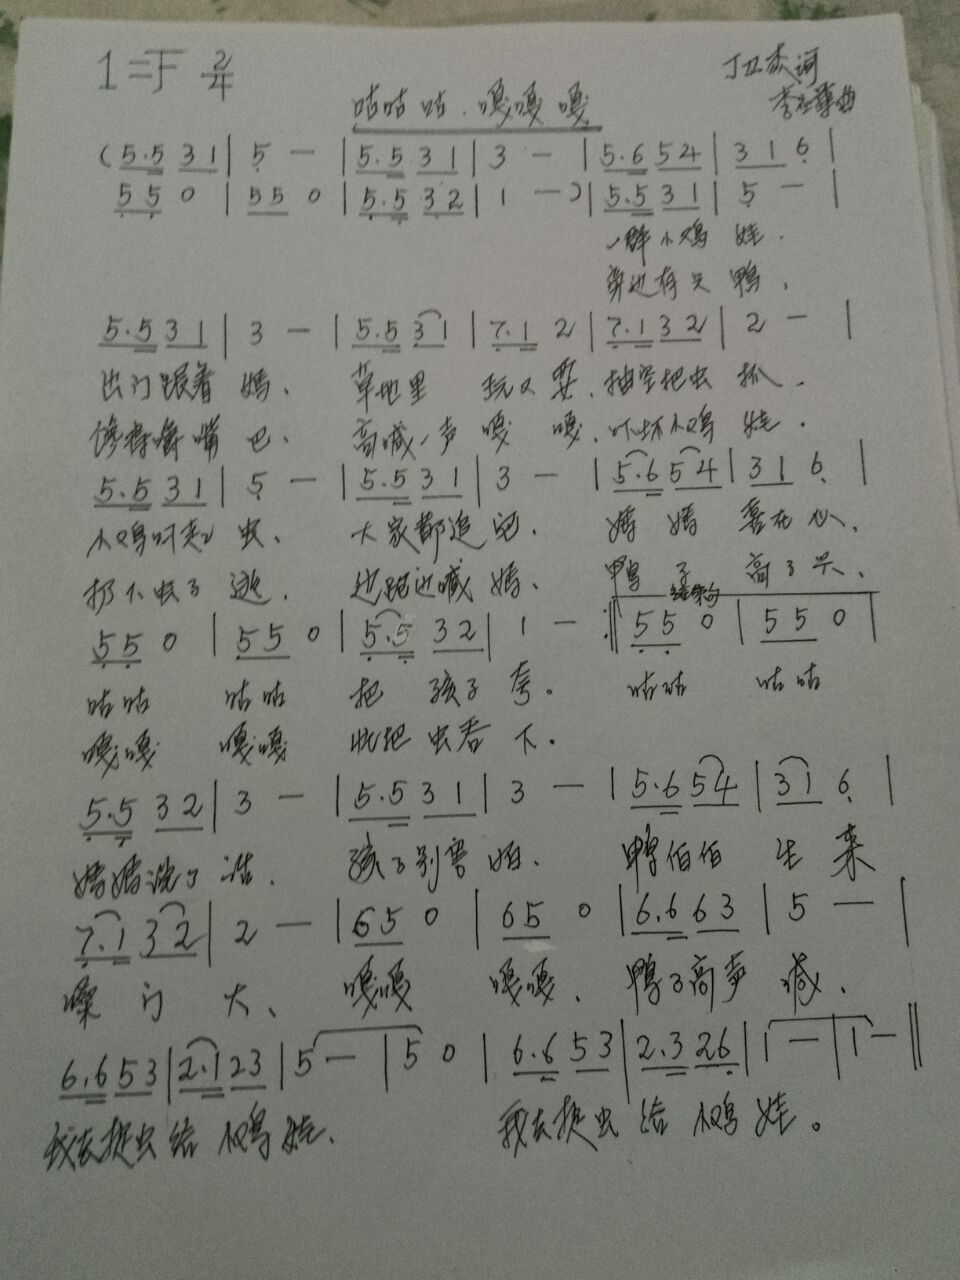 1=F 2/4
咕咕咕.嘎嘎嘎
词
曲
(5.5 3 1 | 5 — | 5.5 3 1 | 3 — | 5.6 5 4 | 3 1 6 |
5 5 0 | 5 5 0 | 5.5 3 2 | 1 —) | 5.5 3 1 | 5 — |
一群小鸡娃.
旁边有只鸭、
5.5 3 1 | 3 — | 5.5 3 1 | 7.1 2 | 7.1 3 2 | 2 — |
出门跟着妈、草地里玩又耍.抽空把虫抓.
馋得嚼嘴巴.高喊一声嘎嘎.吓坏小鸡娃.
5.5 3 1 | 5 — | 5.5 3 1 | 3 — | 5.6 5 4 | 3 1 6 |
小鸡叼走虫.大家都追它.妈妈喜在心.
扔下虫子逃.边跑边喊妈、鸭子高了兴、
结束句
5 5 0 | 5 5 0 | 5.5 3 2 | 1 — :‖ 5 5 0 | 5 5 0 |
咕咕 咕咕 把孩子夸。咕咕 咕咕
嘎嘎 嘎嘎 忙把虫吞下.
5.5 3 2 | 3 — | 5.5 3 1 | 3 — | 5.6 5 4 | 3 1 6 |
妈妈说了话.孩子别害怕.鸭伯伯生来
7.1 3 2 | 2 — | 6 5 0 | 6 5 0 | 6.6 6 3 | 5 — |
嗓门大、嘎嘎 嘎嘎、鸭子高声喊、
6.6 5 3 | 2.1 2 3 | 5 — | 5 0 | 6.6 5 3 | 2.3 2 6 | 1 — | 1 — ‖
我去捉虫给小鸡娃、我去捉虫给小鸡娃。